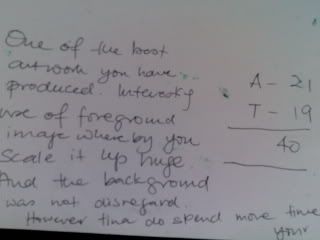 One of the best
artwork you have
produced. Interesting
use of foreground
image where by you
Scale it up huge
And the background
was not disregard.
However tina do spend more time
your
A - 21
T - 19
40